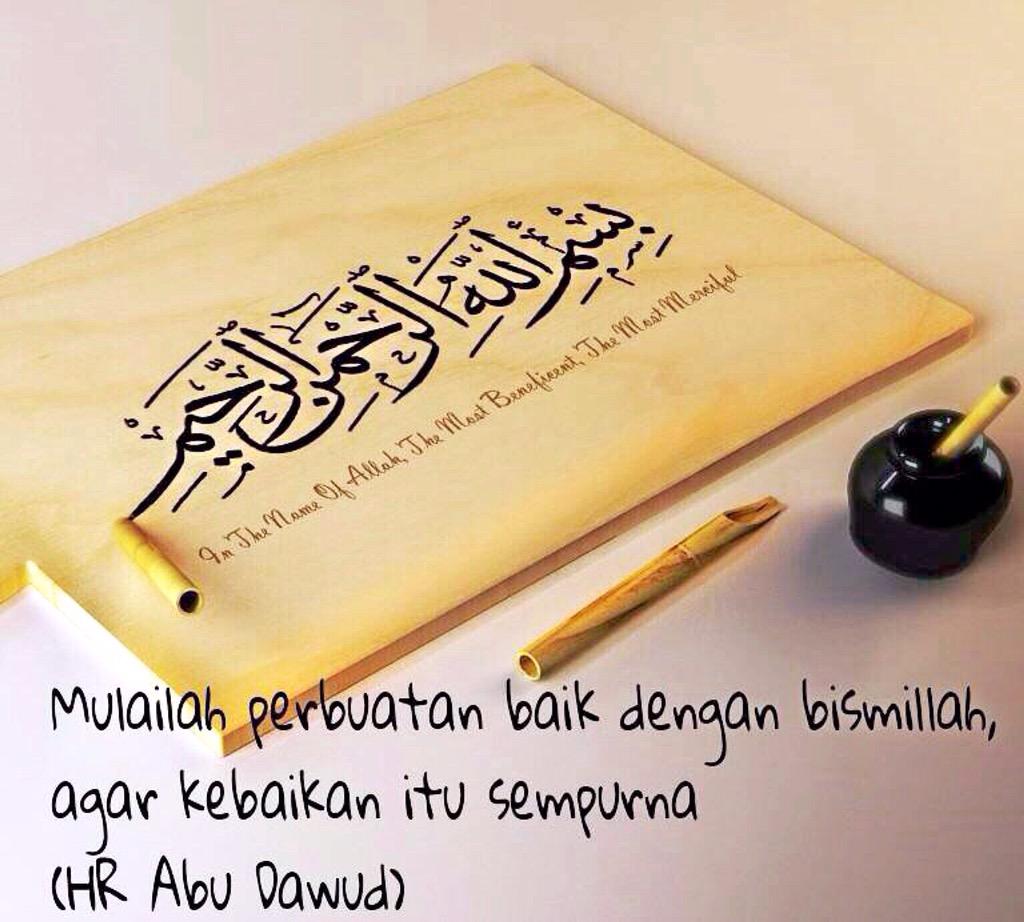 بِسْمِ اللَّهِ الرَّحْمَٰنِ الرَّحِيمِ
In The Name Of Allah, The Most Beneficent, The Most Merciful
Mulailah perbuatan baik dengan bismillah,
agar kebaikan itu sempurna
(HR Abu Dawud)